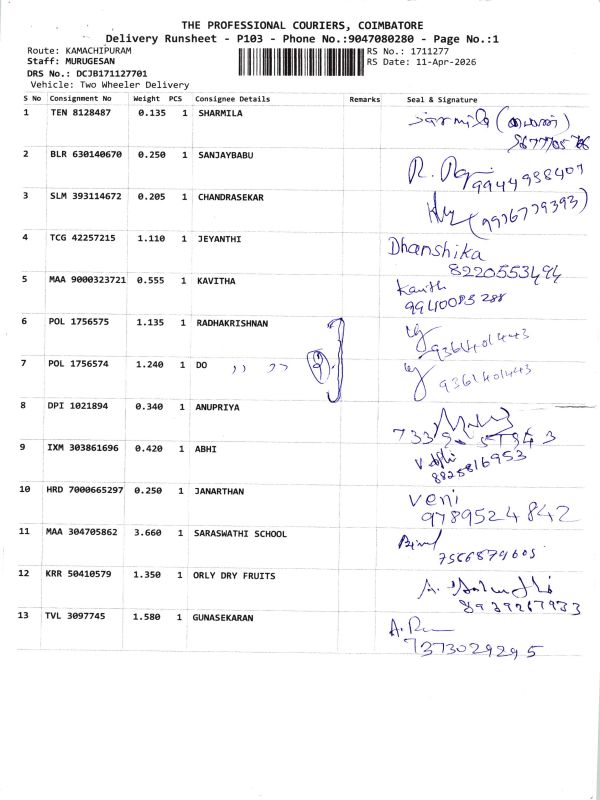 THE PROFESSIONAL COURIERS, COIMBATORE
Delivery Runsheet - P103 - Phone No.:9047080280 - Page No.:1
Route: KAMACHIPURAM RS No.: 1711277
Staff: MURUGESAN RS Date: 11-Apr-2026
DRS No.: DCJB171127701
Vehicle: Two Wheeler Delivery
S No Consignment No Weight PCS Consignee Details Remarks Seal & Signature
1 TEN 8128487 0.135 1 SHARMILA
2 BLR 630140670 0.250 1 SANJAYBABU
9944938407
3 SLM 393114672 0.205 1 CHANDRASEKAR
(9976779393)
4 TCG 42257215 1.110 1 JEYANTHI Dhanshika
8220553494
5 MAA 9000323721 0.555 1 KAVITHA Kavith
9940085288
6 POL 1756575 1.135 1 RADHAKRISHNAN
9361401443
7 POL 1756574 1.240 1 DO ,, ,,
9361401443
8 DPI 1021894 0.340 1 ANUPRIYA
9 IXM 303861696 0.420 1 ABHI
8825816953
10 HRD 7000665297 0.250 1 JANARTHAN veni
9789524842
11 MAA 304705862 3.660 1 SARASWATHI SCHOOL
7566879605
12 KRR 50410579 1.350 1 ORLY DRY FRUITS
8939267933
13 TVL 3097745 1.580 1 GUNASEKARAN
7373029295